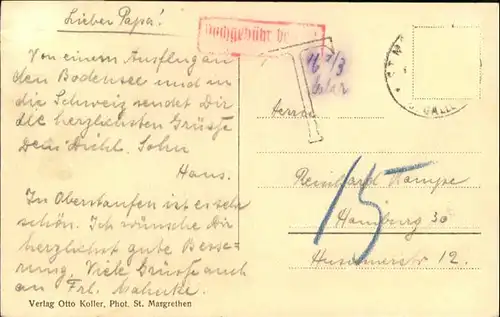 Lieber Papa!
Von einem Ausflug an
den Bodensee und in
die Schweiz sendet Dir
die herzlichsten Grüsse
Dein Sohn
Hans.
In Oberstaufen ist es sehr
schön. Ich wünsche Dir
herzlichst gute Besse-
rung. Viele Grüsse auch
an Frl. Mahnke.
Verlag Otto Koller, Phot. St. Margrethen
Nachgebühr
T
16 2/3
ST. M
GALL
Herrn
Reinhard Kampe
Hamburg 30
12.
15